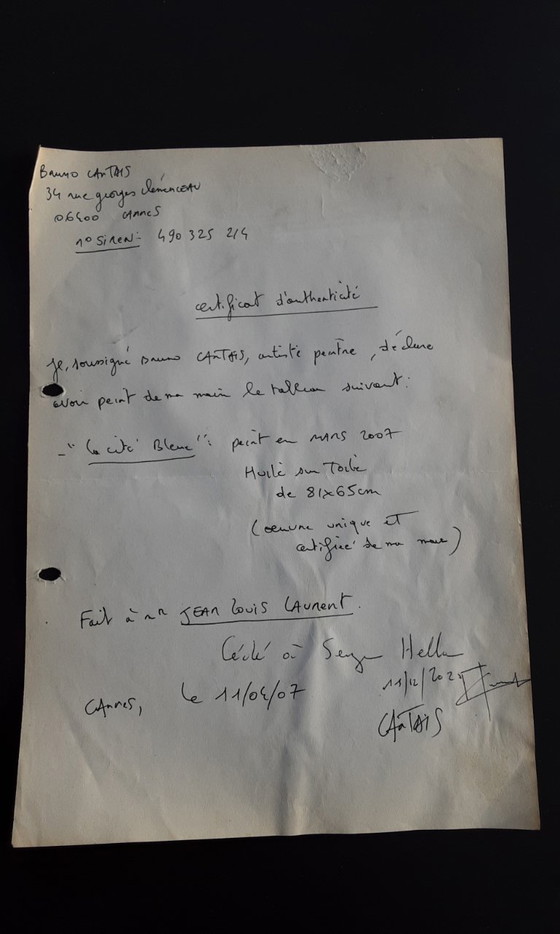 Bruno CANTAIS
34 rue georges clémenceau
06400 CANNES
n° SIREN: 490 325 214
certificat d'authenticité
Je, soussigné Bruno CANTAIS, artiste peintre, déclare
avoir peint de ma main le tableau suivant:
- "la cité Bleue": peint en MARS 2007
Huile sur Toile
de 81x65cm
(oeuvre unique et
certifiée de ma main)
Fait à Mr JEAN LOUIS LAURENT.
Cédé à Serge
11/12/202
Cannes, le 11/04/07
CANTAIS